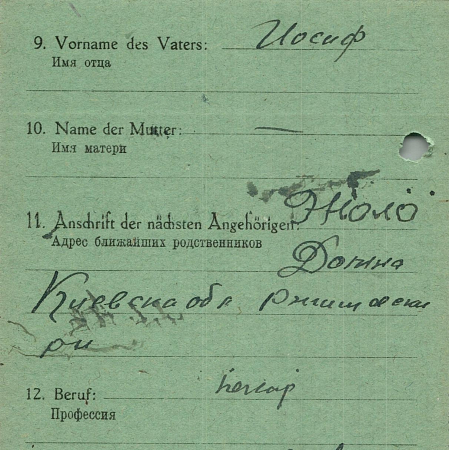 9. Vorname des Vaters: Иосиф
Имя отца
10. Name der Mutter: —
Имя матери
11. Anschrift der nächsten Angehörigen:
Адрес ближайших родственников
Киевская обл
рн
12. Beruf:
Профессия